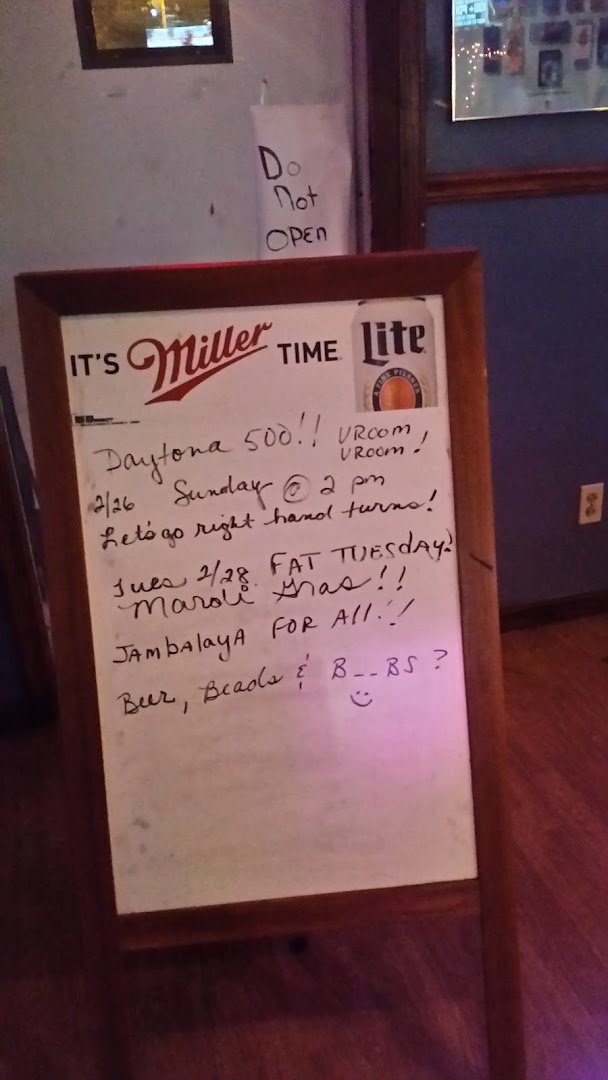 Do
Not
OPEN
IT'S Miller TIME Lite
A FINE PILSNER
Daytona 500!! VROOM
VROOM!
2/26 Sunday @ 2 pm
Let's go right hand turns!
Tues 2/28 FAT TUESDAY!
Mardi Gras!!
JAMBALAYA FOR All!!
Beer, Beads & B__BS?